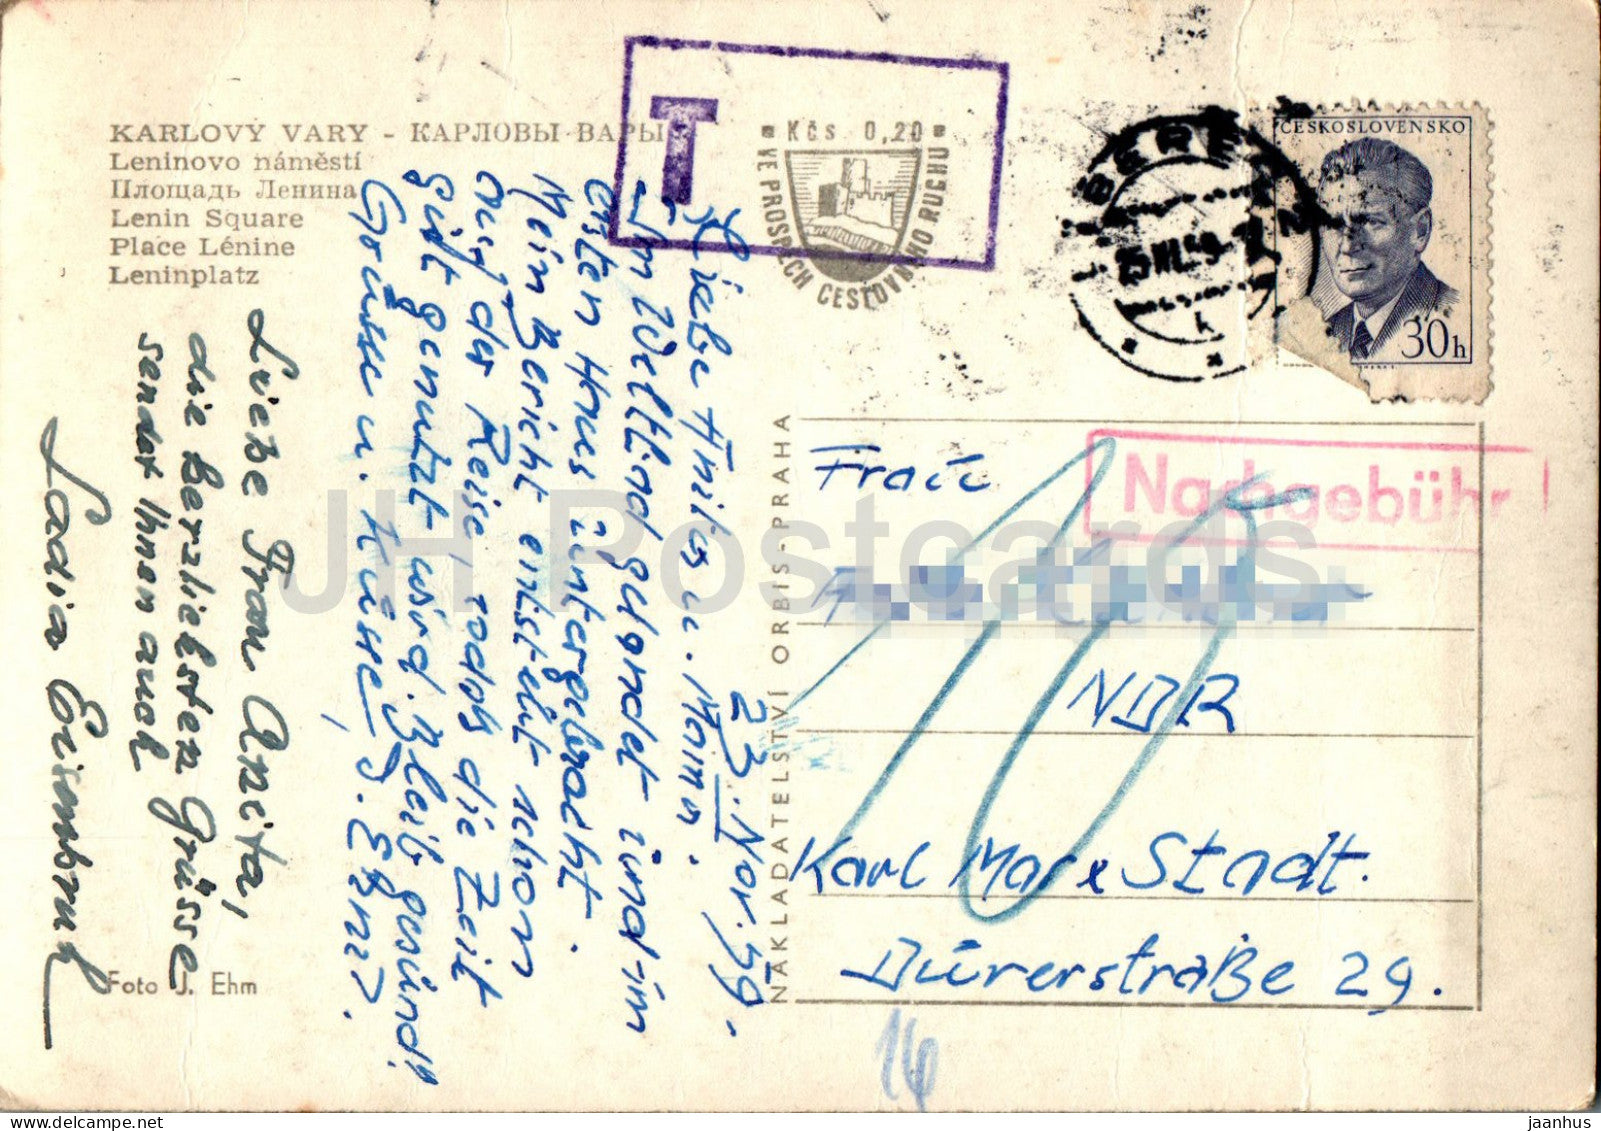 KARLOVÝ VARY - КАРЛОВЫ ВАРЫ
Leninovo náměstí
Площадь Ленина
Lenin Square
Place Lénine
Leninplatz
T
Kčs 0,20
VE PROSPĚCH CESTOVNÍHO RUCHU
ČESKOSLOVENSKO
30h
Nachgebühr
23. Nov. 59.
Liebe Anita u. Mann.
Im Weltbad gelandet und in
ersten Haus untergebracht.
Mein Bericht entsteht schon
auf der Reise, sodaß die Zeit
gut genutzt wird. Bleib gesund!!
Grüsse u. Küsse,
Liebe Frau Anita,
die herzliebsten Grüsse
sendet Ihnen auch
NAKLADATELSTVÍ ORBIS - PRAHA
Frau
Karl Marx Stadt.
Dürerstraße 29.
16
Foto J. Ehm
JH Postcards
delcampe.net
jaanhus